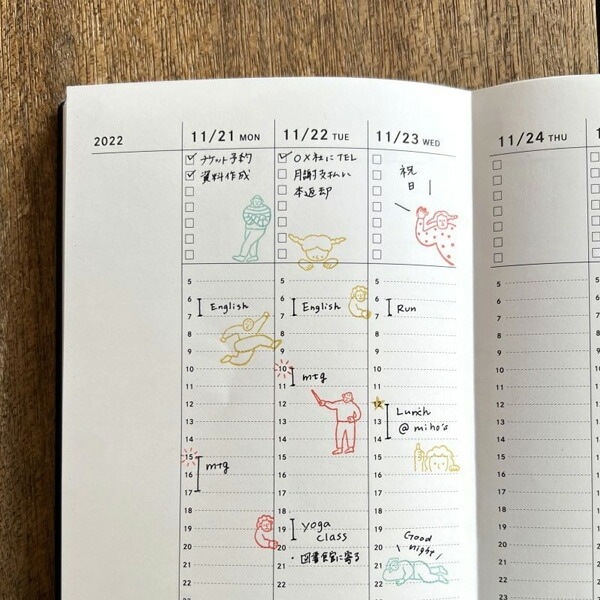 2022
11/21 MON
チケット予約
資料作成
5
6
English
7
8
9
10
11
12
13
14
15
mtg
16
17
18
19
20
21
22
11/22 TUE
OX社にTEL
月謝支払い
本返却
5
6
English
7
8
9
10
mtg
11
12
13
14
15
16
17
18
19
yoga
class
20
・図書館に寄る
21
22
11/23 WED
祝
日
5
6
Run
7
8
9
10
11
12
Lunch
13
@ miho's
14
15
16
17
18
19
Good
night
20
21
22
11/24 THU
5
6
7
8
9
10
11
12
13
14
15
16
17
18
19
20
21
22